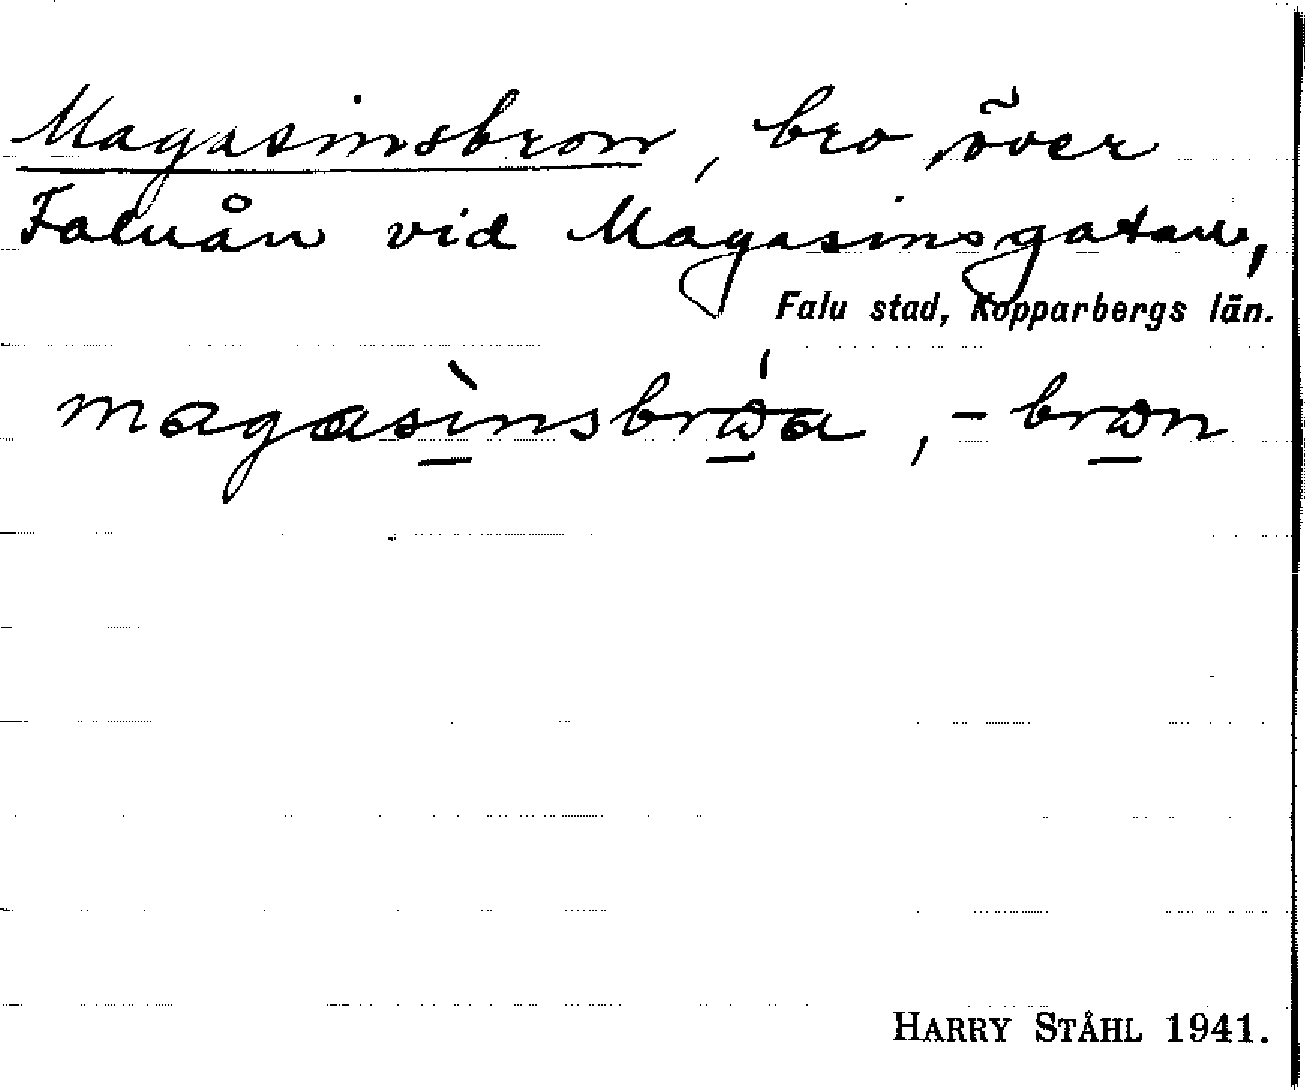 Magasinsbron, bro över
Faluån vid Magasinsgatan,
Falu stad, Kopparbergs län.
magasìnsbróa, -bron
HARRY STÅHL 1941.